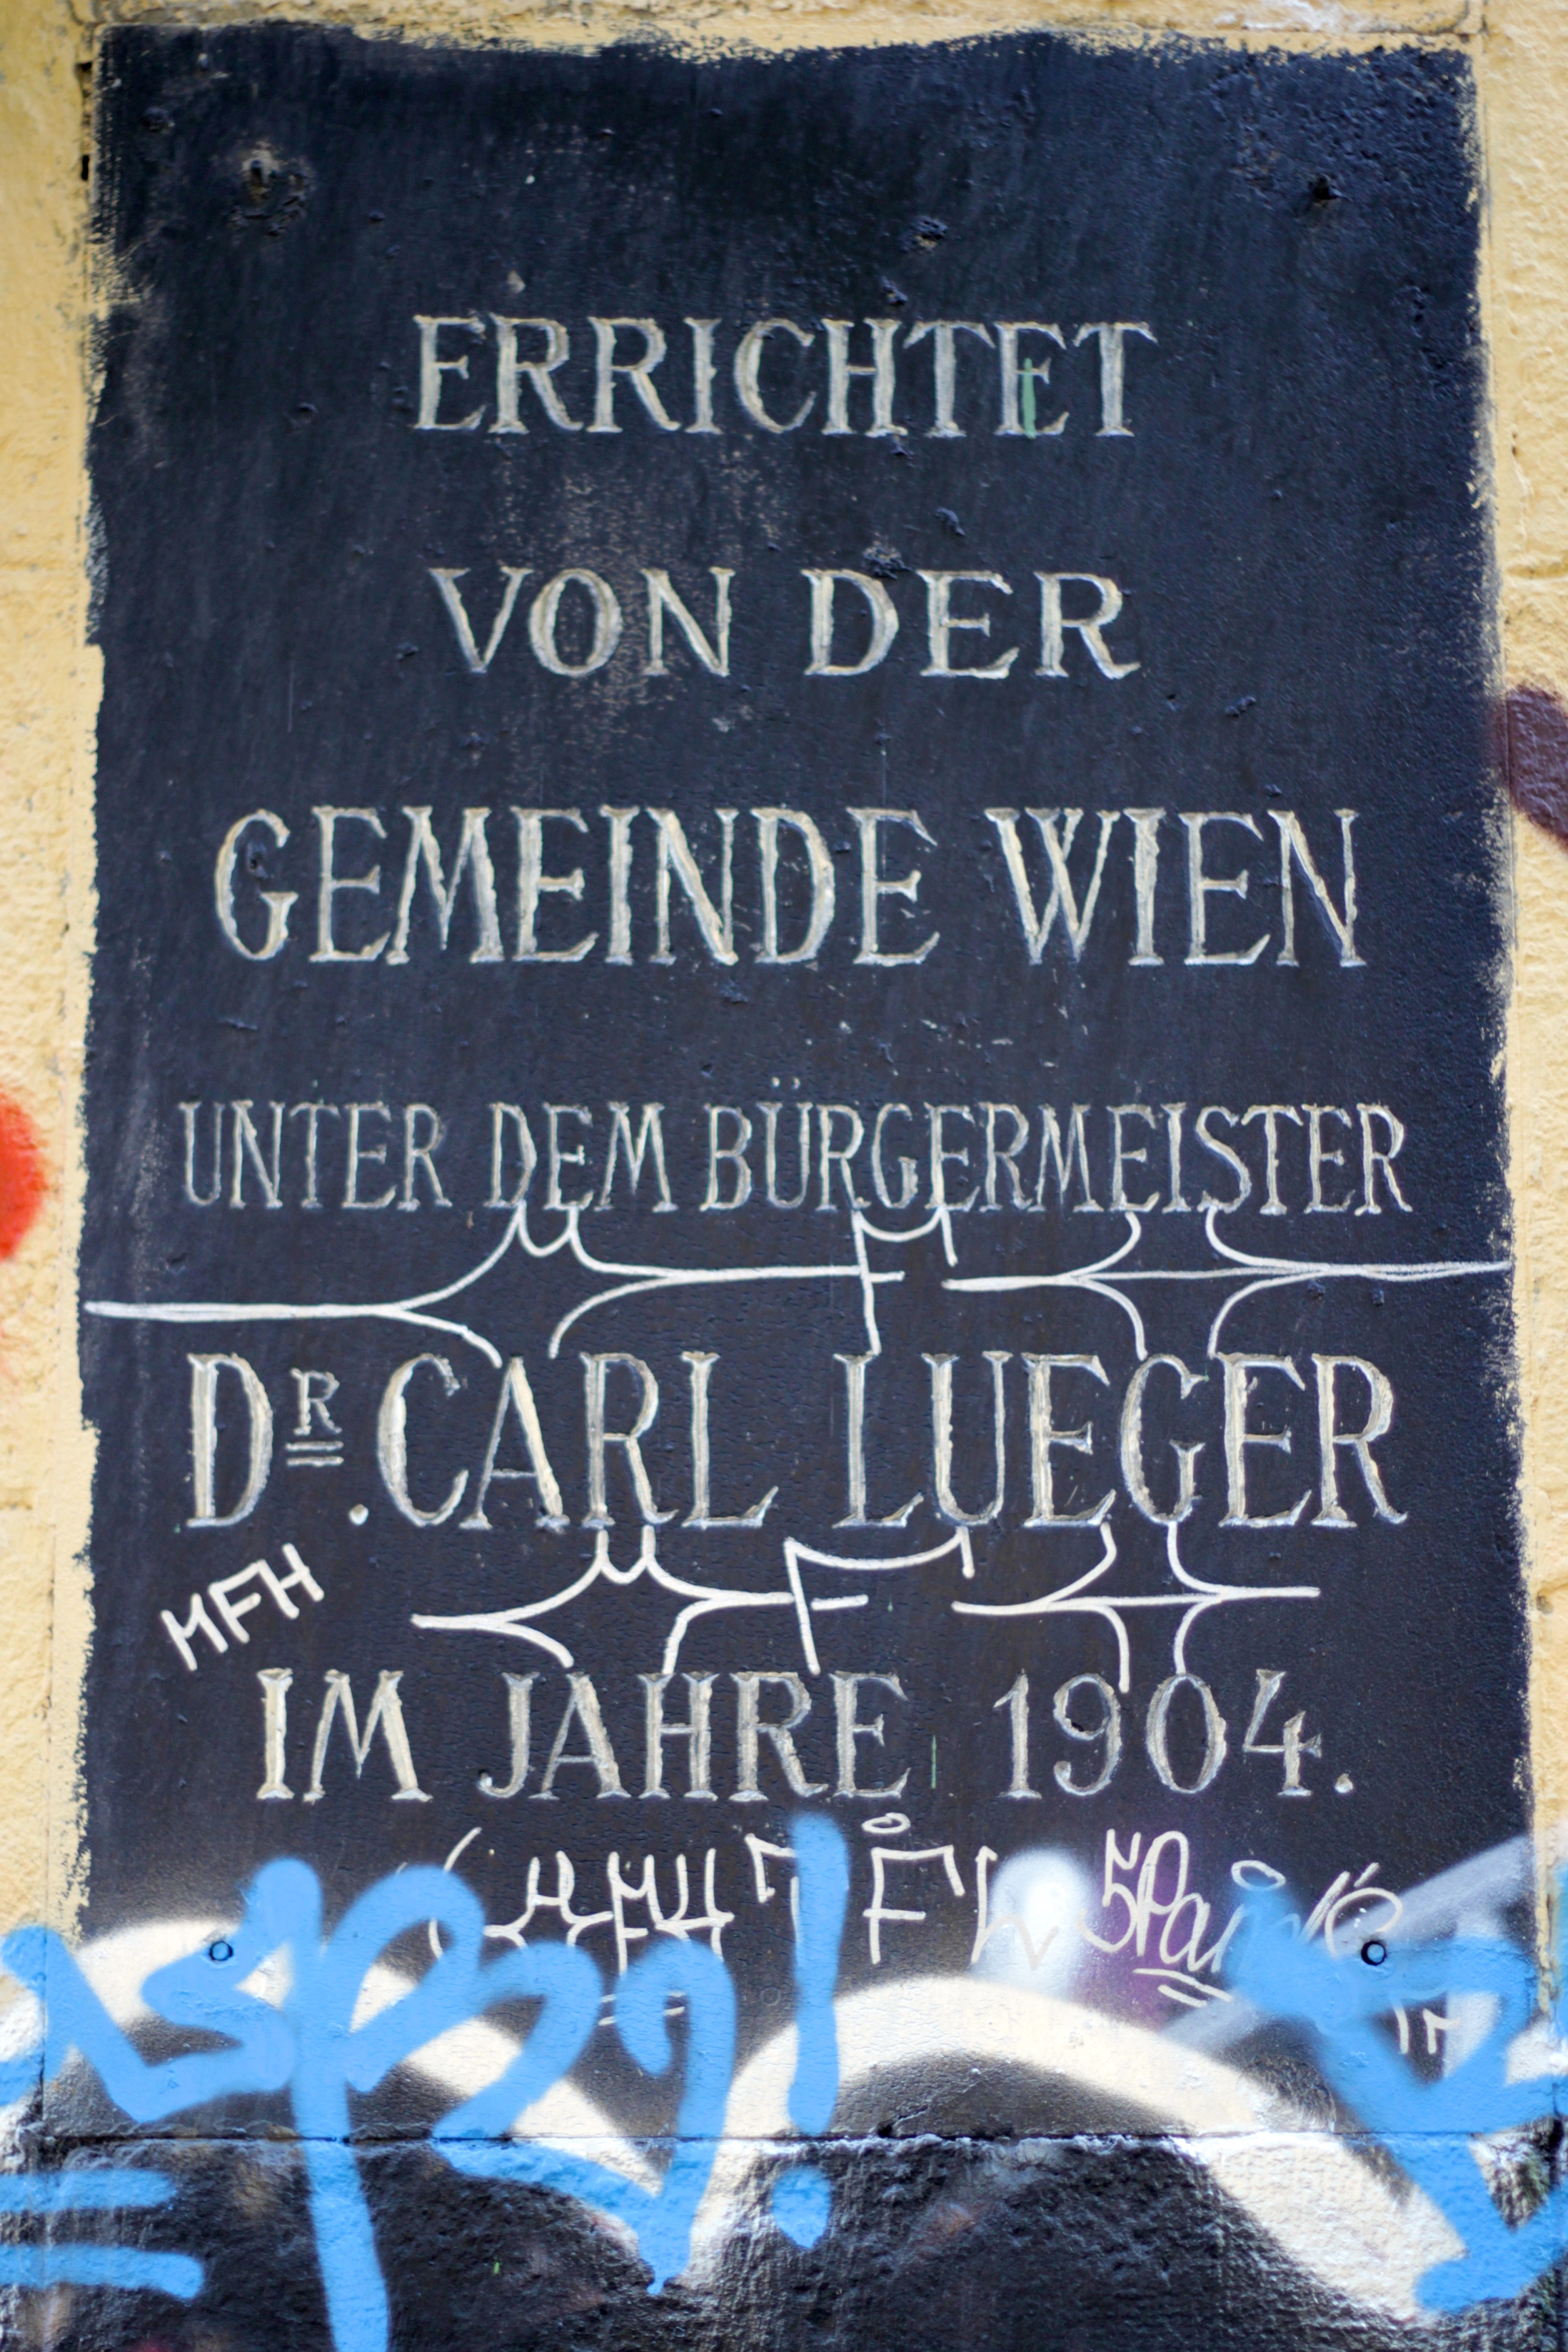 ERRICHTET
VON DER
GEMEINDE WIEN
UNTER DEM BÜRGERMEISTER
DR. CARL LUEGER
MFH
IM JAHRE 1904.